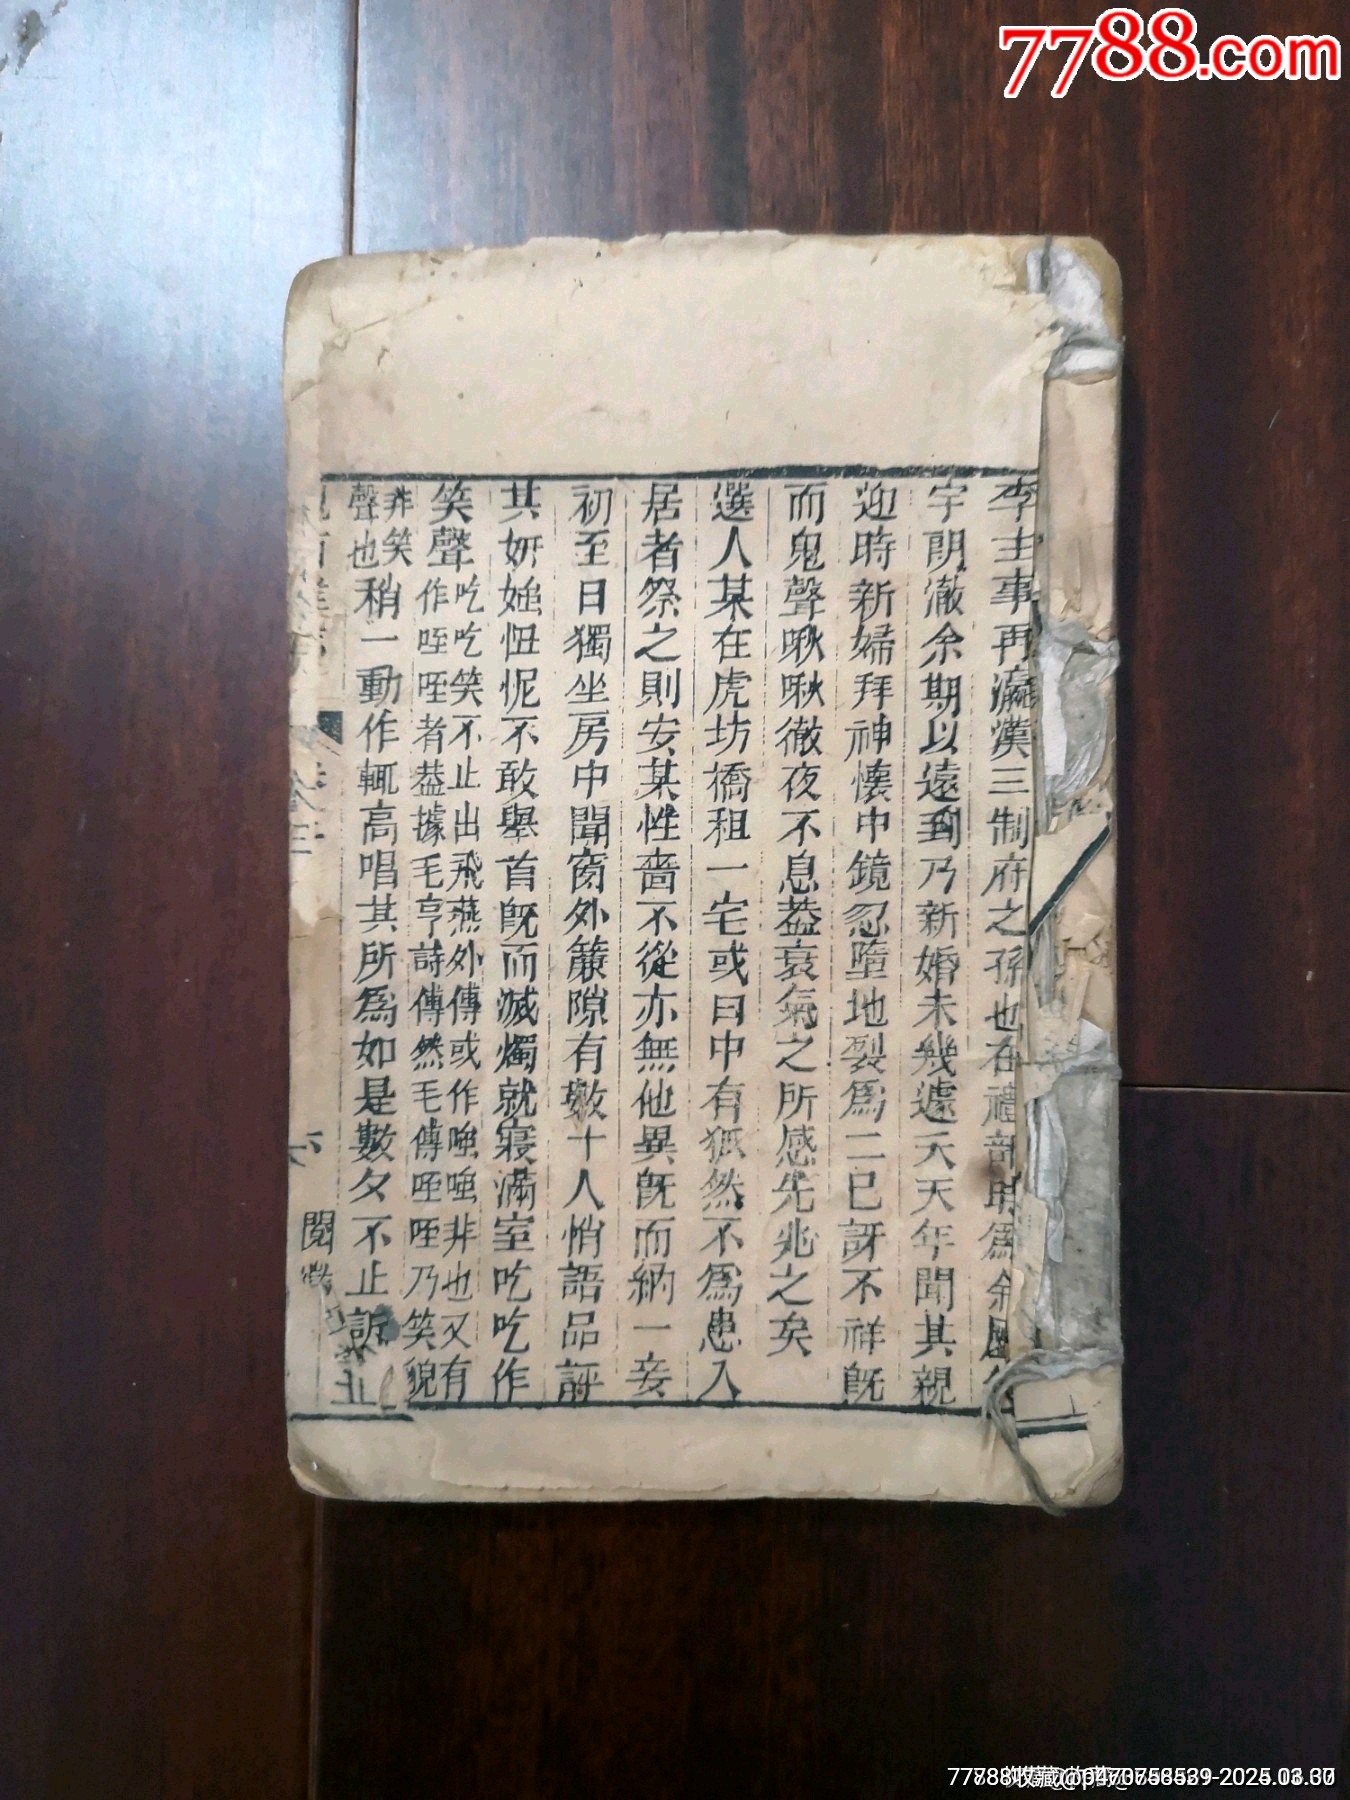 7788.com
李主事再瀛漢三制府之孫也在禮部時為余屬
宇朗澈余期以遠到乃新婚未幾遽夭天年聞其親
迎時新婦拜神懷中鏡忽墮地裂為二已訝不祥既
而鬼聲啾啾徹夜不息葢衰氣之所感先兆之矣
選人某在虎坊橋租一宅或曰中有狐然不為患入
居者祭之則安某性嗇不從亦無他異既而納一妾
初至日獨坐房中聞窗外簾隙有數十人悄語品評
其妍媸忸怩不敢舉首既而滅燭就寢滿室吃吃作
笑聲吃吃笑不止出飛燕外傳或作嗤嗤非也又有
作咥咥者葢據毛亨詩傳然毛傳咥咥乃笑貌
非笑
聲也稍一動作輒高唱其所為如是數夕不止訴
卷三
六
閱微
77788收藏